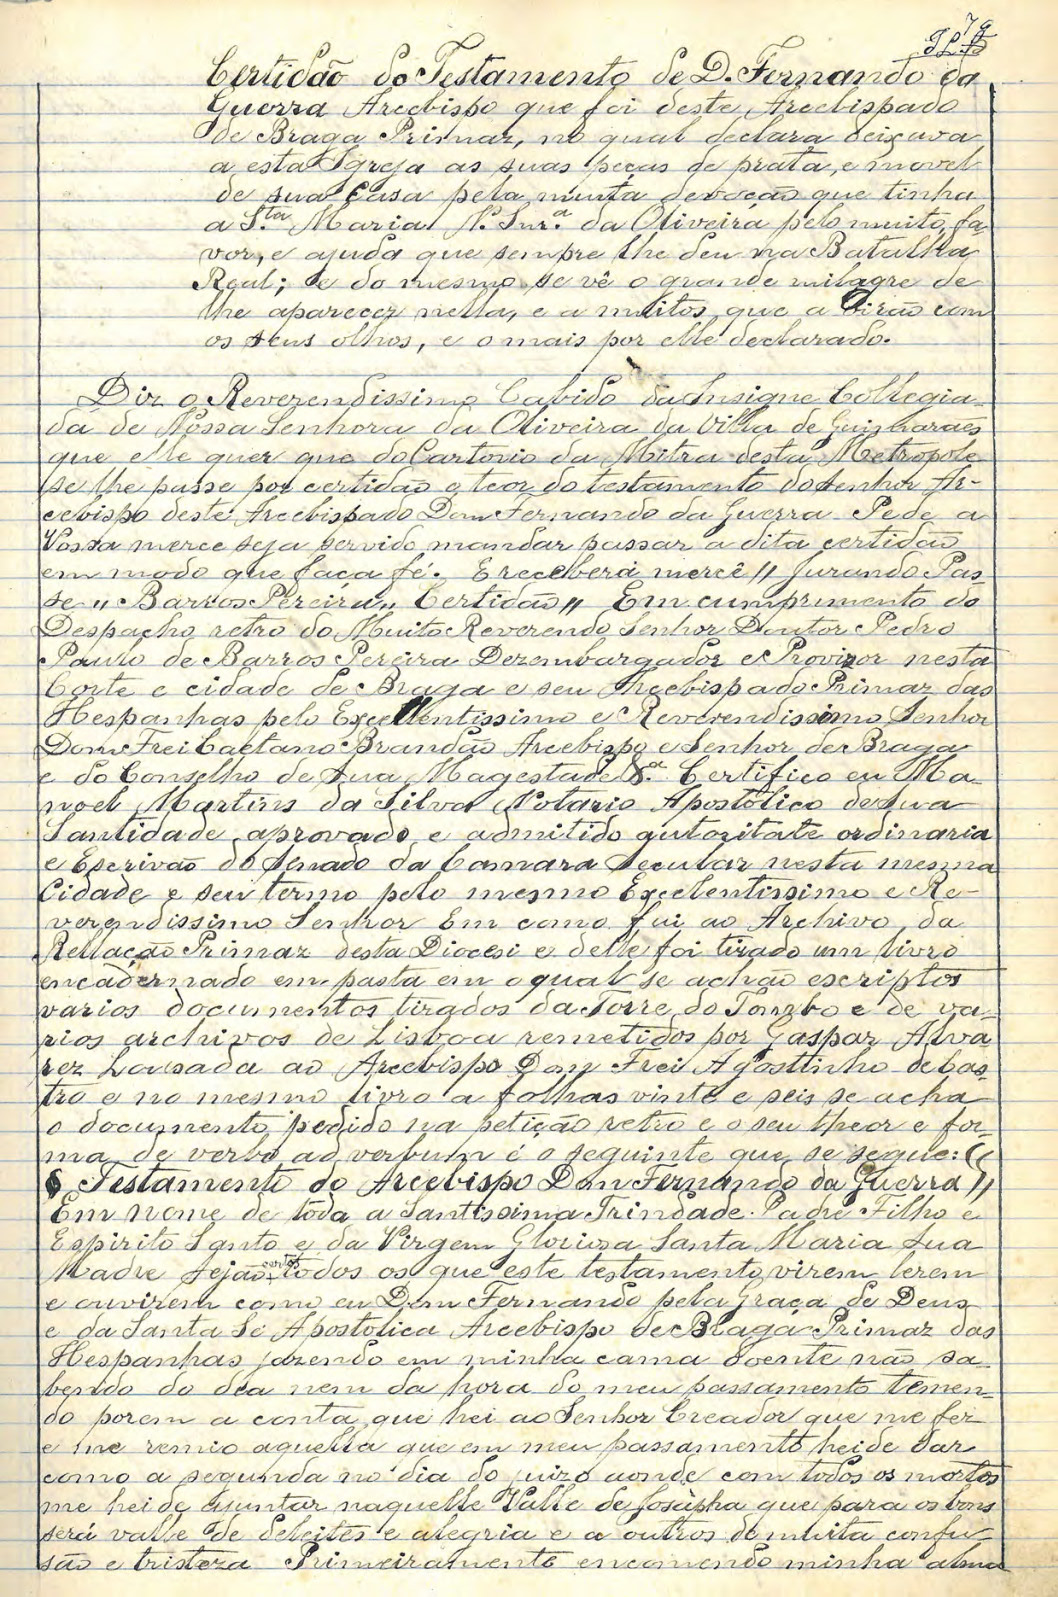 79
Certidão do Testamento de D. Fernando da
Guerra Arcebispo que foi deste Arcebispado
de Braga Primaz, no qual declara deixava
a esta Igreja as suas peças de prata, e movel
de sua Casa pela muita devoção que tinha
a S.ta Maria N. Snr.ª da Oliveira pelo muito fa-
vor, e ajuda que sempre lhe deu na Batalha
Real; e do mesmo se vê o grande milagre de
lhe aparecer nella, e a muitos que a virão com
os seus olhos, e o mais por elle declarado.
Diz o Reverendissimo Cabido da Insigne Collegia-
da de Nossa Senhora da Oliveira da Villa de Guimharães
que elle quer que do Cartorio da Mitra desta Metropole
se lhe passe por certidão o teor do testamento do Senhor Ar-
cebispo deste Arcebispado Dom Fernando da Guerra Pede a
Vossa merce seja servido mandar passar a dita certidão
em modo que faça fé. E receberá mercê // Jurando Pas-
se ,, Barros Pereira ,, Certidão // Em cumprimento do
Despacho retro do Muito Reverendo Senhor Doutor Pedro
Paulo de Barros Pereira Dezembargador e Provizor nesta
Corte e cidade de Braga e seu Arcebispado Primaz das
Hespanhas pelo Excellentissimo e Reverendissimo Senhor
Dom Frei Caetano Brandão Arcebispo e Senhor de Braga
e do Conselho de Sua Magestade &.ª Certifico eu Ma-
noel Martins da Silva Notario Apostolico de Sua
Santidade aprovado e admitido autoritate ordinaria
e Escrivão do Senado da Camara Secular nesta mesma
Cidade e seu termo pelo mesmo Excelentissimo e Re-
verendissimo Senhor Em como fui ao Archivo da
Rellação Primaz desta Diocesi e delle foi tirado um livro
encadernado em pasta em o qual se achão escriptos
varios documentos tirados da Torre do Tombo e de va-
rios archivos de Lisboa remetidos por Gaspar Alva
rez Lousada ao Arcebispo Dom Frei Agosttinho de Cas-
tro e no mesmo livro a folhas vinte e seis se acha
o documento pedido na petição retro e o seu theor e for-
ma de verbo ad verbum é o seguinte que se segue: ((
Testamento do Arcebispo Dom Fernando da Guerra //
Em nome de toda a Santissima Trindade Padre Filho e
Espirito Santo e da Virgem Glorioza Santa Maria Sua
Madre Sejão certos todos os que este testamento virem lerem
e ouvirem como eu Dom Fernando pela Graça de Deus
e da Santa Sé Apostolica Arcebispo de Braga Primaz das
Hespanhas jazendo em minha cama doente não sa-
bendo do dia nem da hora do meu passamento temen-
do porem a conta que hei ao Senhor Creador que me fez
e me remio aquella que em meu passamento heide dar
como a segunda no dia do juizo aonde com todos os mortos
me hei de ajuntar naquelle Valle de Josapha que para os bons
será valle de deleites e alegria e a outros de muita confu-
são e tristeza Primeiramente encomendo minha alma